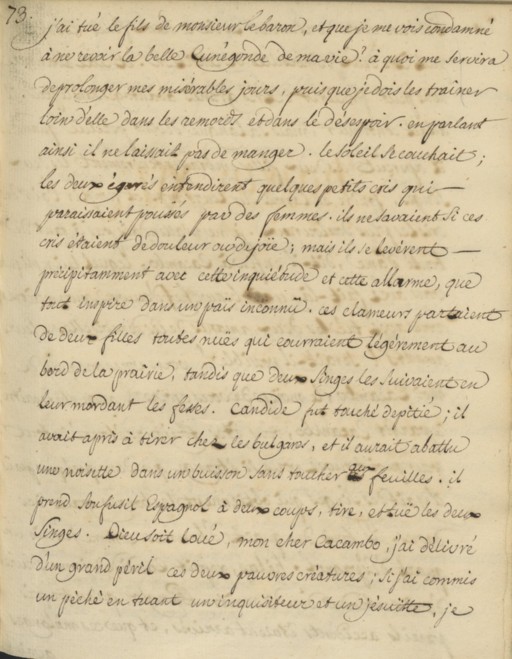 73.
j'ai tué le fils de monsieur le baron, et que je me vois condamné
à ne revoir la belle Cunégonde de ma vie? à quoi me servira
de prolonger mes misérables jours, puis que je dois les traîner
loin d'elle dans les remords et dans le désespoir. en parlant
ainsi il ne laissait pas de manger. le soleil se couchait;
les deux égarés entendirent quelques petits cris qui —
paraissaient poussés par des femmes. ils ne savaient si ces
cris étaient de douleur ou de joïe; mais ils se levérent —
précipitamment avec cette inquiétude et cette allarme, que
tout inspire dans un païs inconnû. ces clameurs partaient
de deux filles toutes nuës qui courraient légérement au
bord de la prairie, tandis que deux singes les suivaient en
leur mordant les fesses. Candide fut touché de pitié; il
avait apris à tirer chez les bulgares, et il aurait abattu
une noisette dans un buisson sans toucher aux feuilles. il
prend son fusil Espagnol à deux coups, tire, et tuë les deux
singes. Dieu soit loué, mon cher Cacambo, j'ai délivré
d'un grand péril ces deux pauvres créatures; si j'ai commis
un péché en tuant un inquisiteur et un jésuitte, je